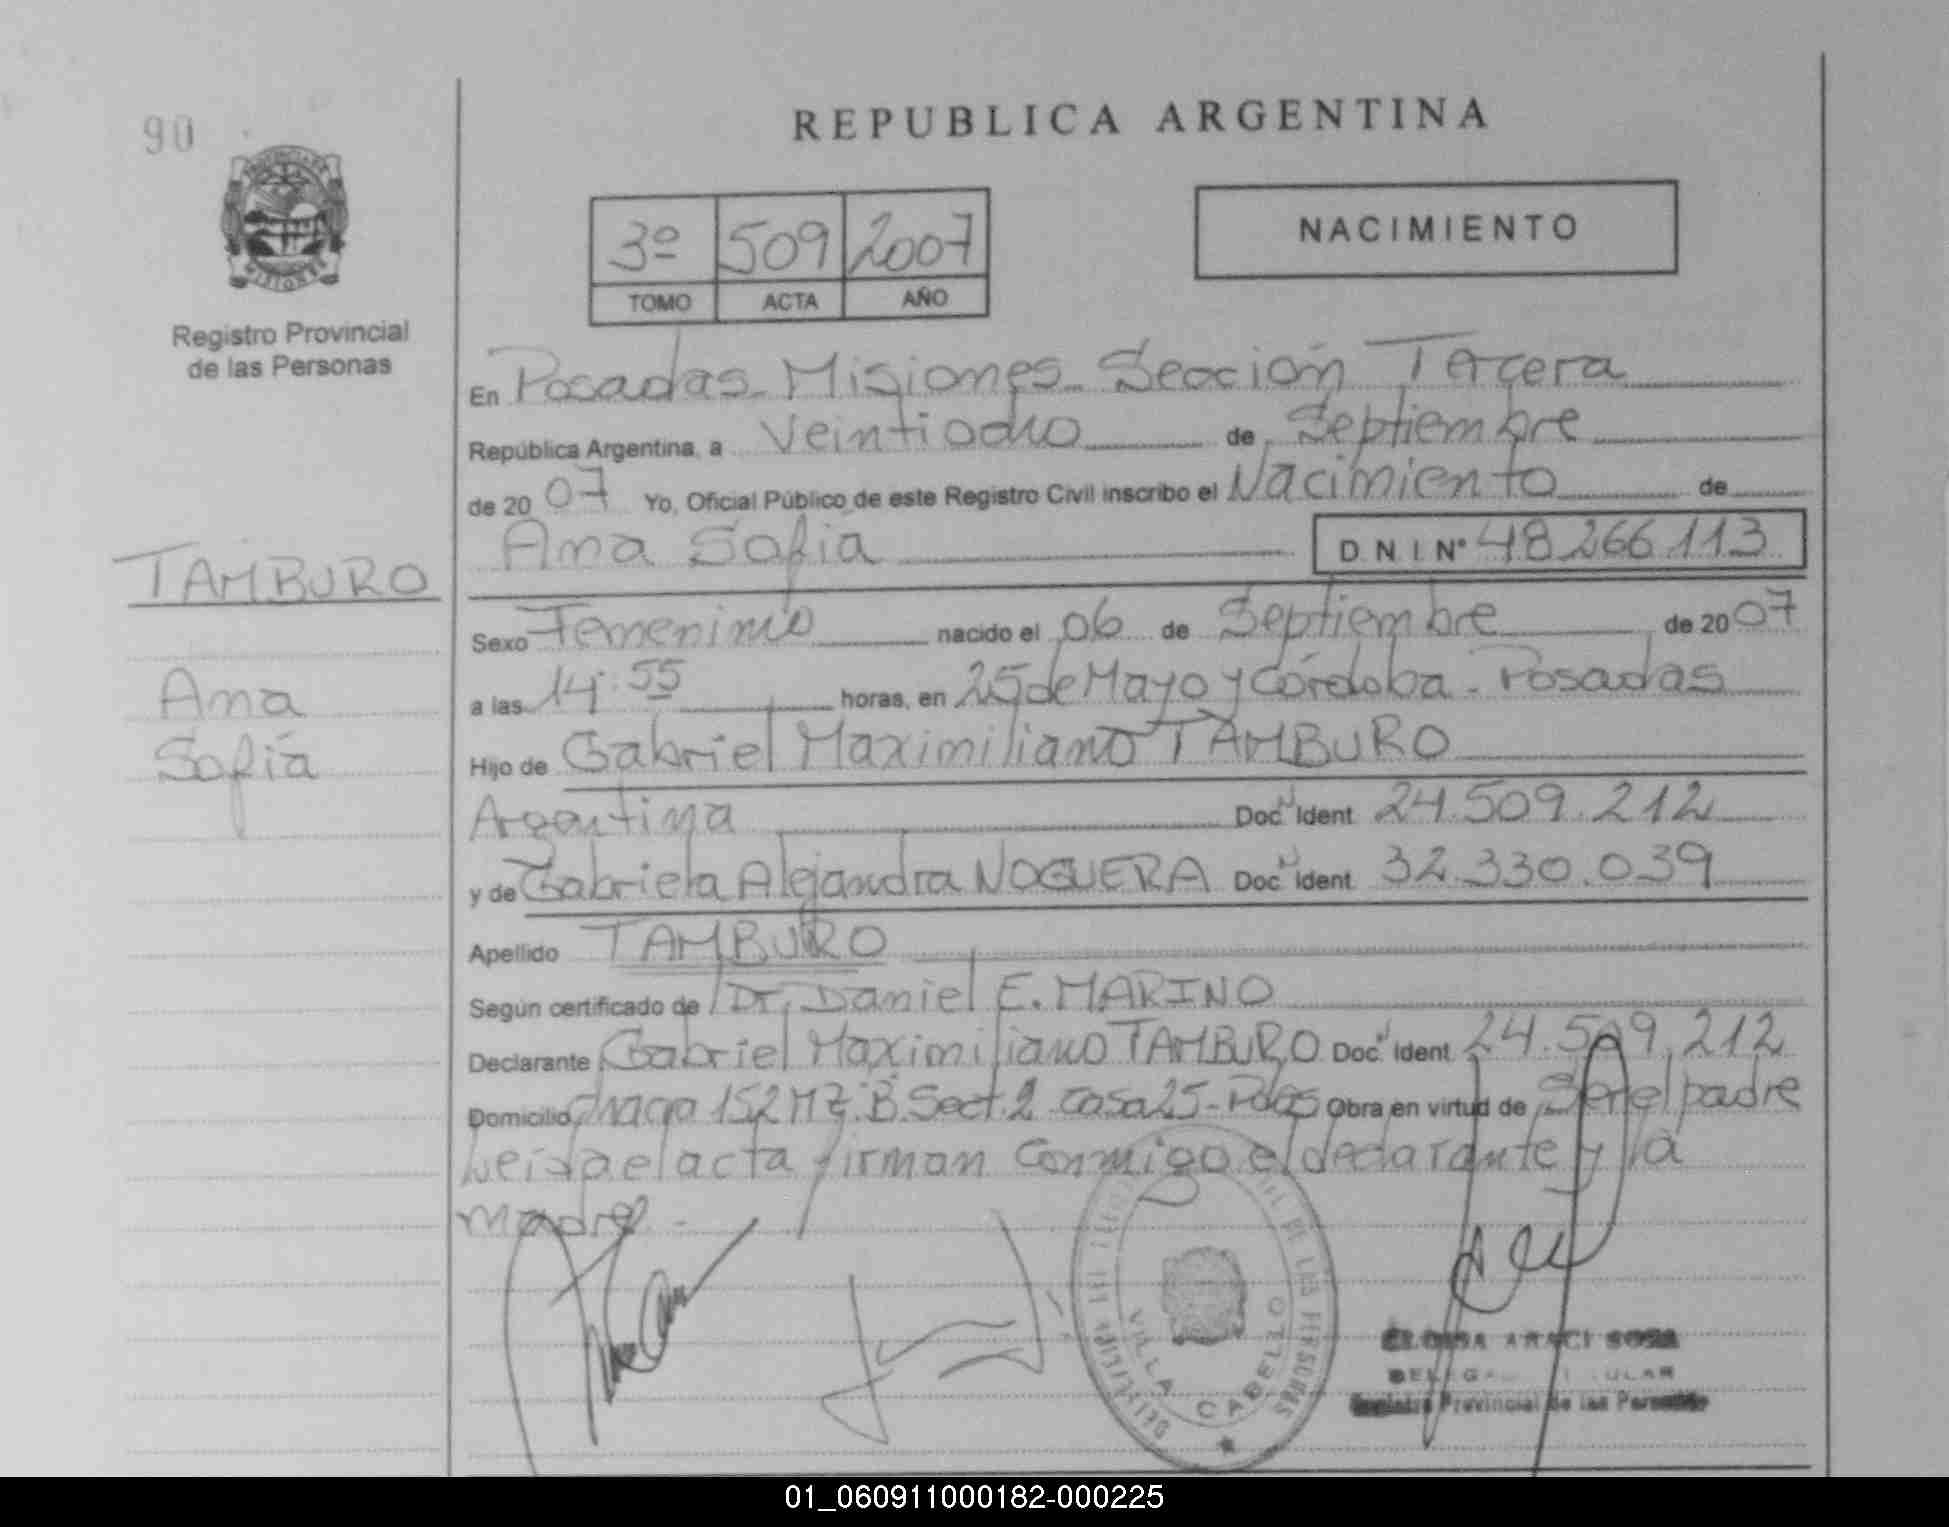 90
REPUBLICA ARGENTINA
3º 509 2007
TOMO ACTA AÑO
NACIMIENTO
Registro Provincial
de las Personas
En Posadas - Misiones - Sección Tercera
República Argentina, a Veintiocho de Septiembre
de 20 07 Yo, Oficial Público de este Registro Civil inscribo el Nacimiento de
Ana Sofía D.N.I. Nº 48.266.113
TAMBURO
Ana
Sofía
Sexo Femenino nacido el 06 de Septiembre de 20 07
a las 14:55 horas, en 25 de Mayo y Córdoba - Posadas
Hijo de Gabriel Maximiliano TAMBURO
Argentina Doc. Ident. 24.509.212
y de Gabriela Alejandra NOGUERA Doc. Ident. 32.330.039
Apellido TAMBURO
Según certificado de Dr. Daniel E. MARINO
Declarante Gabriel Maximiliano TAMBURO Doc. Ident. 24.509.212
Domicilio Chacra 152 MZ. B. Sect. 2 Casa 25 - Pdas Obra en virtud de Ser el padre
Leída el acta firman conmigo el declarante y la
madre -
VILLA CABELLO
DE LAS PERSONAS
ELOISA ARACI SOSA
Registro Provincial de las Personas
01_060911000182-000225